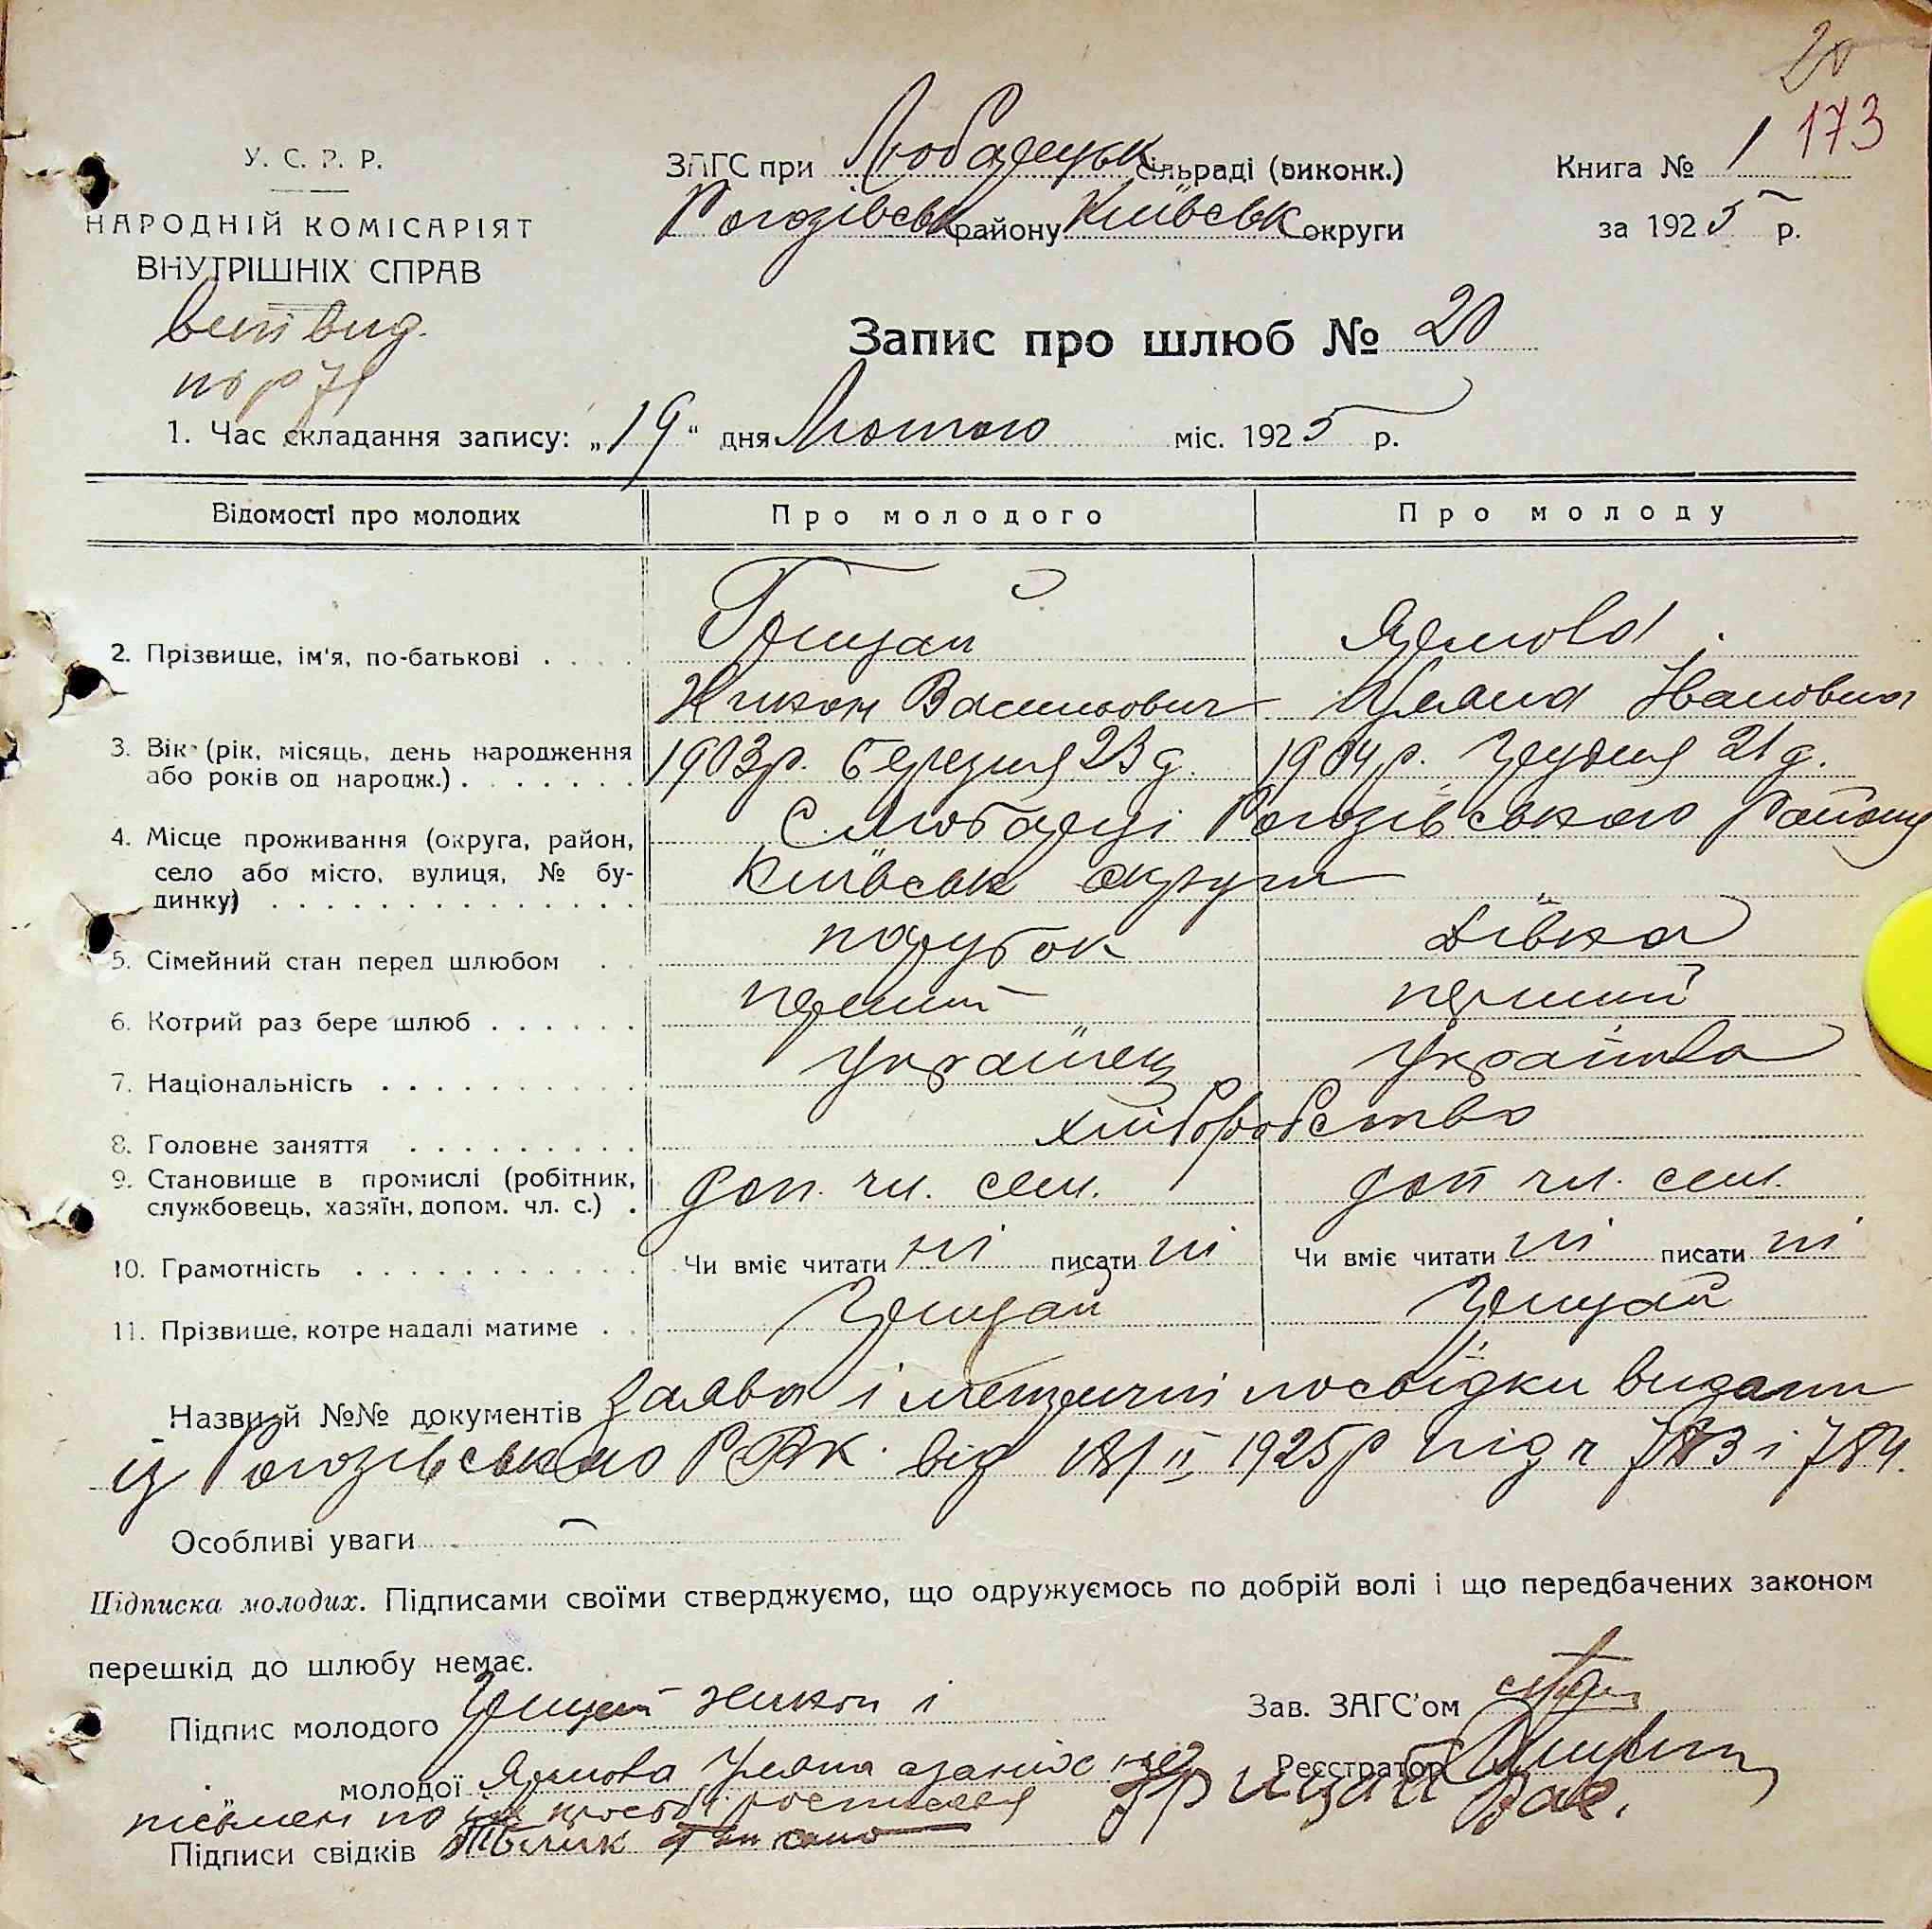 20
173
У. С. Р. Р.
НАРОДНІЙ КОМІСАРІЯТ
ВНУТРІШНІХ СПРАВ
ЗАГС при Любарецьк сільраді (виконк.)
Рогозівськ району Київськ округи
Книга № 1
за 1925 р.
Запис про шлюб № 20
1. Час складання запису: „19“ дня Лютого міс. 1925 р.
Відомості про молодих
Про молодого
Про молоду
2. Прізвище, ім'я, по-батькові . . . .
Грицай
Никон Васильович
Ярмова
Уляна Івановна
3. Вік (рік, місяць, день народження
або років од народж.) . . . . . . .
1903р. березня 23 д.
1904р. Грудня 21 д.
4. Місце проживання (округа, район,
село або місто, вулиця, № бу-
динку) . . . . . . . . . . . . . .
С. Любарці Рогозівського Району
Київськ округи
5. Сімейний стан перед шлюбом . .
парубок
дівка
6. Котрий раз бере шлюб . . . . . .
перший
перший
7. Національність . . . . . . . . . .
Українец
Українка
8. Головне заняття . . . . . . . . .
хліборобство
9. Становище в промислі (робітник,
службовець, хазяїн, допом. чл. с.) .
доп. чл. сем.
доп чл. сем.
10. Грамотність . . . . . . . . . . .
Чи вміє читати ні писати ні
Чи вміє читати ні писати ні
11. Прізвище, котре надалі матиме . .
Грицай
Грицай
Назви й №№ документів Заява і метричні посвідки видани
із Рогозівського РВК. від 18/II 1925р під ч 783 і 784.
Особливі уваги
Підписка молодих. Підписами своїми стверджуємо, що одружуємось по добрій волі і що передбачених законом
перешкід до шлюбу немає.
Підпис молодого Грицай Никон і
Зав. ЗАГС'ом
молодої Ярмова Уляна а за них не
Реєстратор
письмен по їх просьбі росписався
Грицай Вас.
Підписи свідків